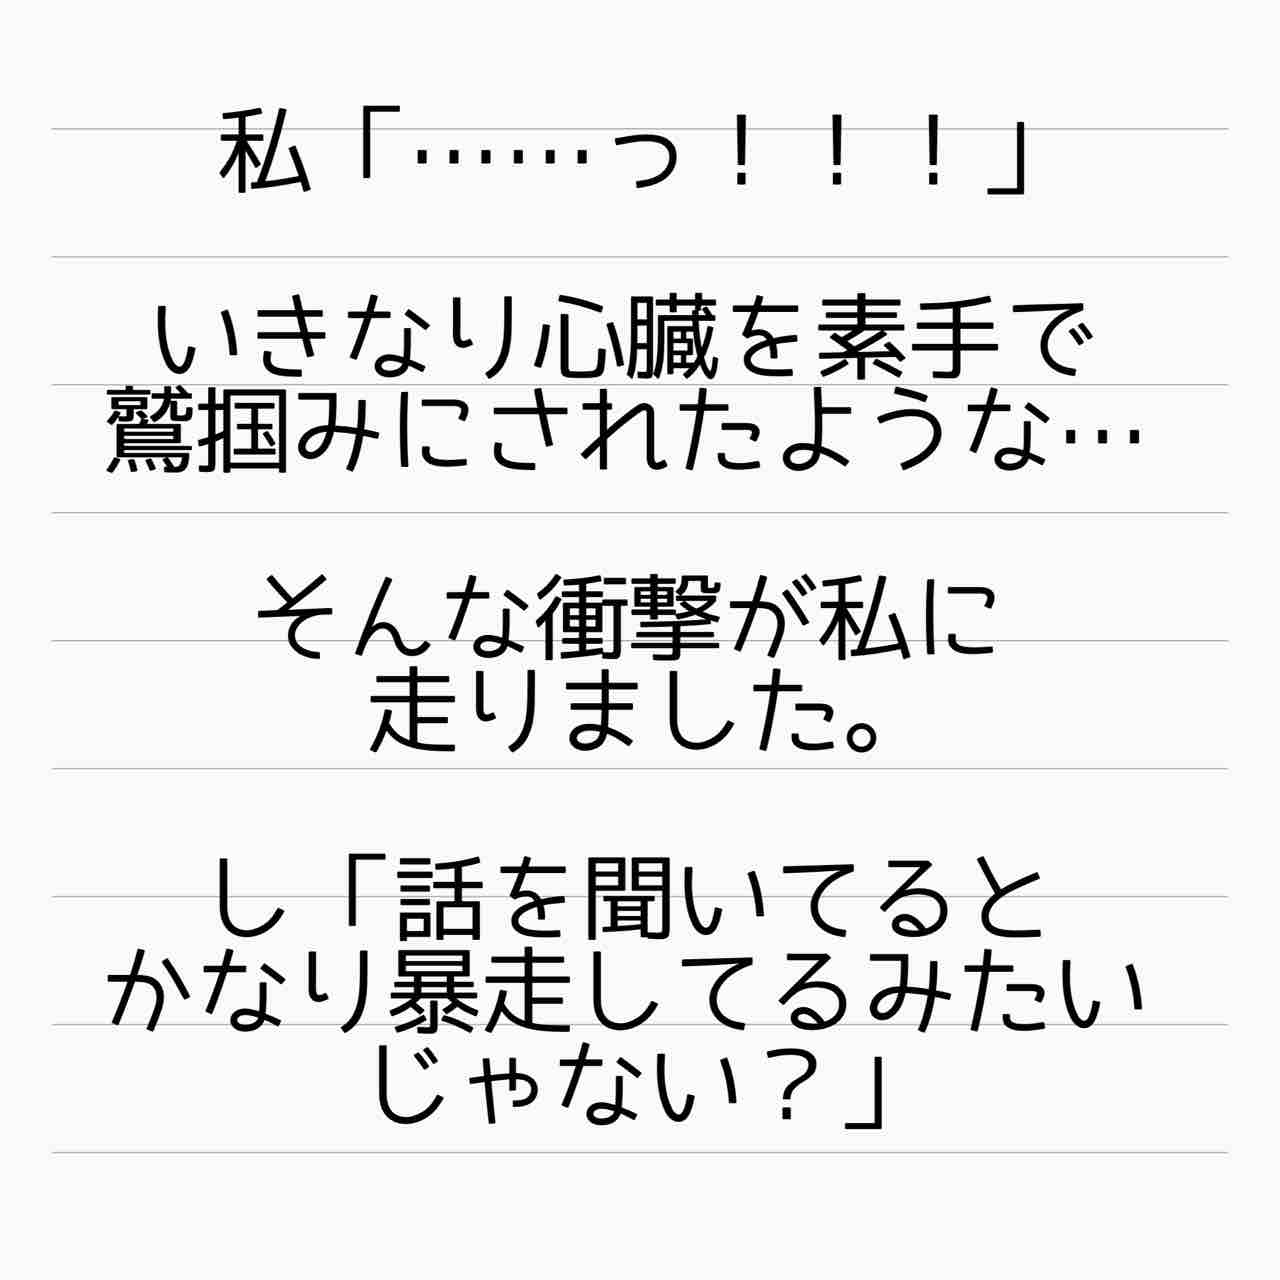 私「……っ！！！」
いきなり心臓を素手で
鷲掴みにされたような…
そんな衝撃が私に
走りました。
し「話を聞いてると
かなり暴走してるみたい
じゃない？」